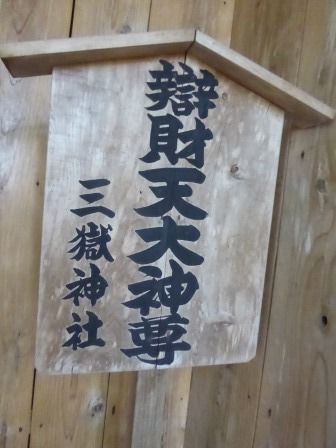 辯財天大神尊
三嶽神社